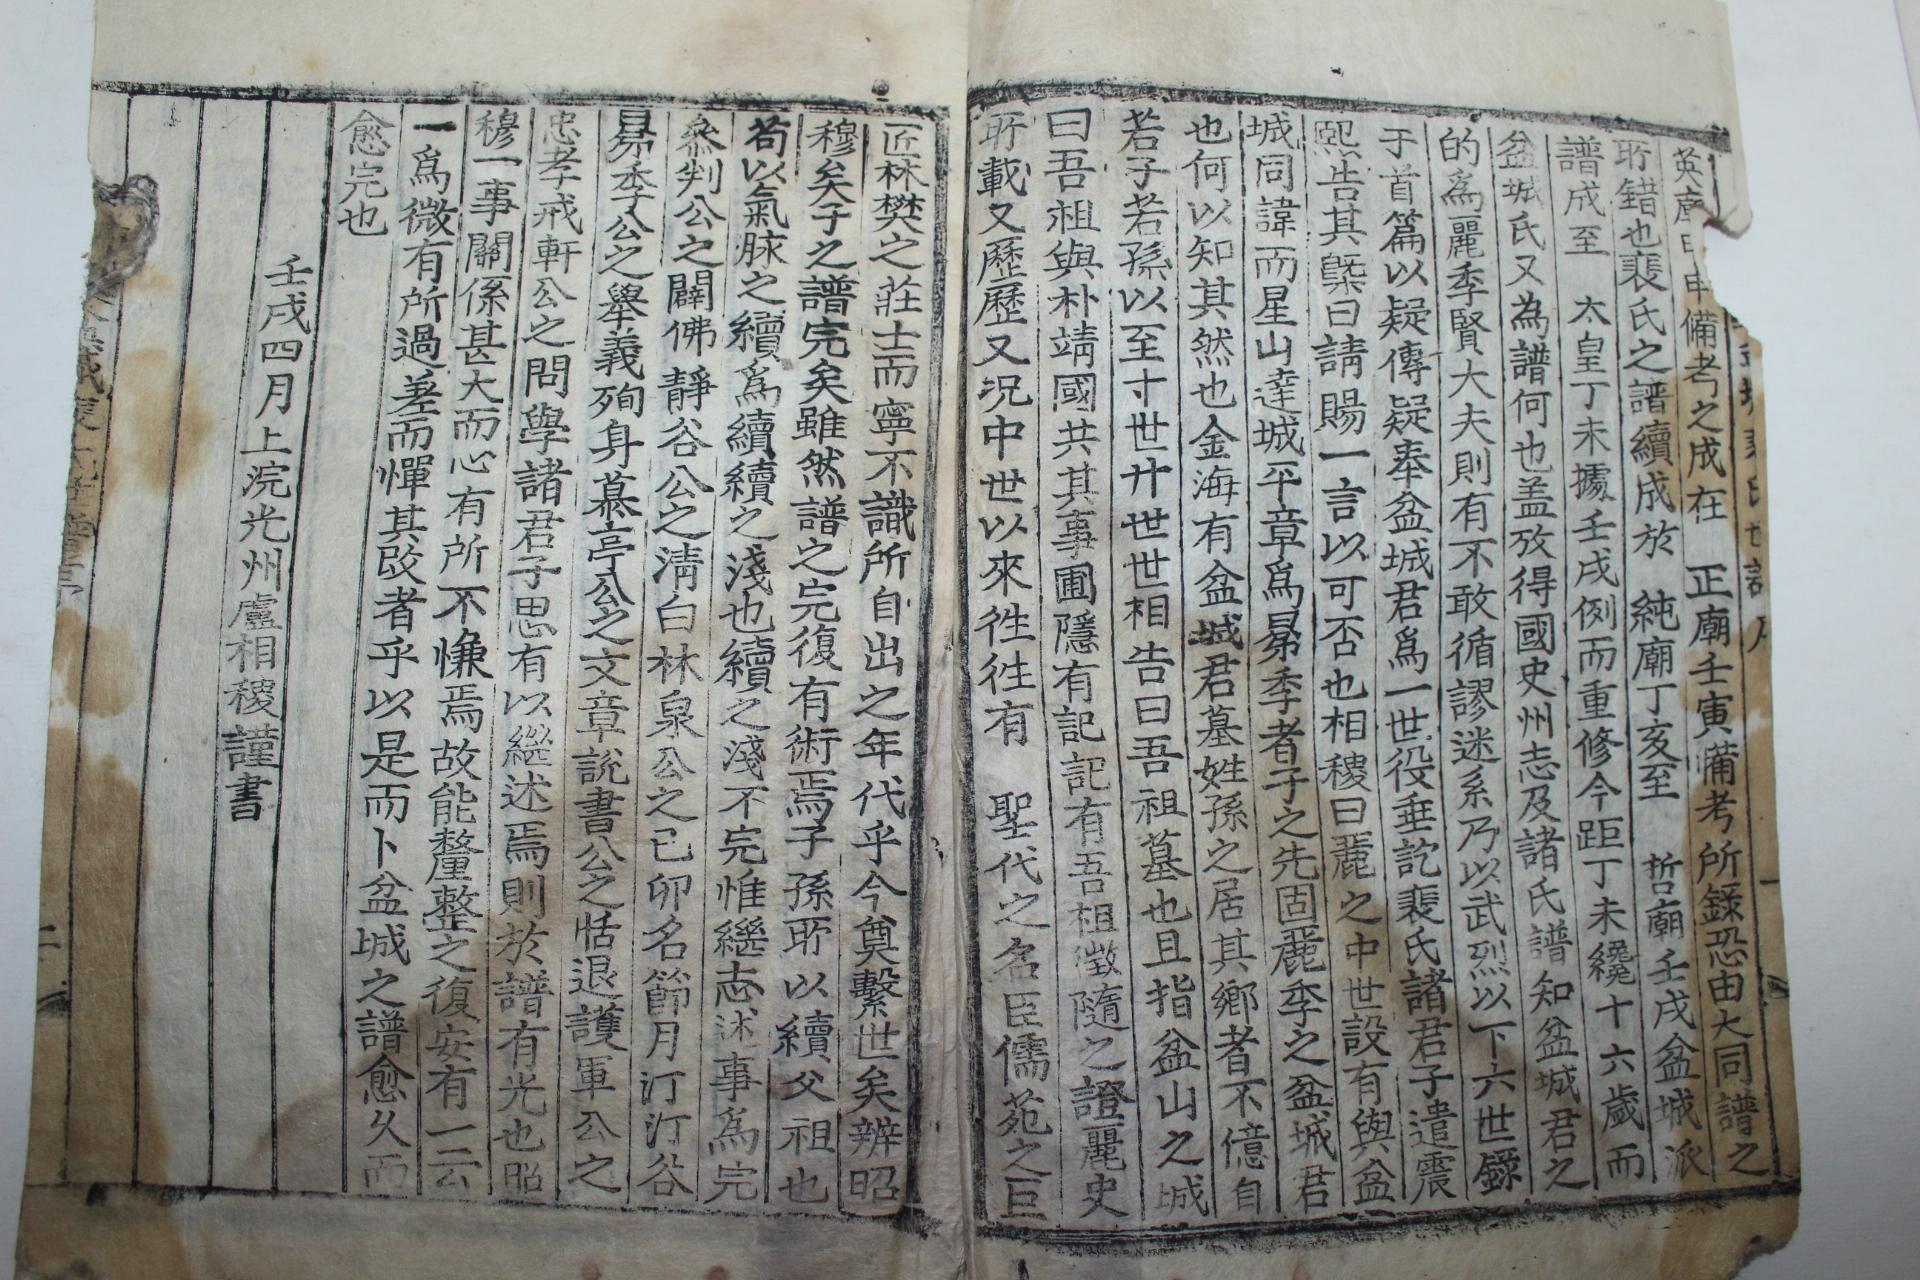 英廟甲申備考之成在 正廟壬寅備考所錄恐由大同譜之
所錯也裵氏之譜續成於 純廟丁亥至 哲廟壬戌盆城派
譜成至 太皇丁未據壬戌例而重修今距丁未纔十六歲而
盆城氏又為譜何也盖攷得國史州志及諸氏譜知盆城君之
的為麗季賢大夫則有不敢循謬迷系乃以武烈以下六世錄
于首篇以疑傳疑奉盆城君爲一世役垂訖裵氏諸君子遣震
熙告其槩曰請賜一言以可否也相稷曰麗之中世設有與盆
城同諱而星山達城平章爲昴季者子之先固麗季之盆城君
也何以知其然也金海有盆城君墓姓孫之居其鄉者不億自
若子若孫以至十世廿世世相告曰吾祖墓也且指盆山之城
曰吾祖與朴靖國共其事圃隱有記記有吾祖徵隨之證麗史
所載又歷歷又况中世以來徃徃有 聖代之名臣儒苑之巨
匠林樊之莊士而寧不識所自出之年代乎今奠繫世矣辨昭
穆矣子之譜完矣雖然譜之完復有術焉子孫所以續父祖也
苟以氣脉之續爲續續之淺也續之淺不完惟繼志述事為完
叅判公之闢佛靜谷公之淸白林泉公之己卯名節月汀汀谷
昴季公之擧義殉身慕亭公之文章說書公之恬退護軍公之
忠孝戒軒公之問學諸君子思有以繼述焉則於譜有光也昭
穆一事關係甚大而心有所不慊焉故能釐整之復安有一云
一爲微有所過差而憚其改者乎以是而卜盆城之譜愈久而
愈完也
壬戌四月上浣光州盧相稷謹書
二